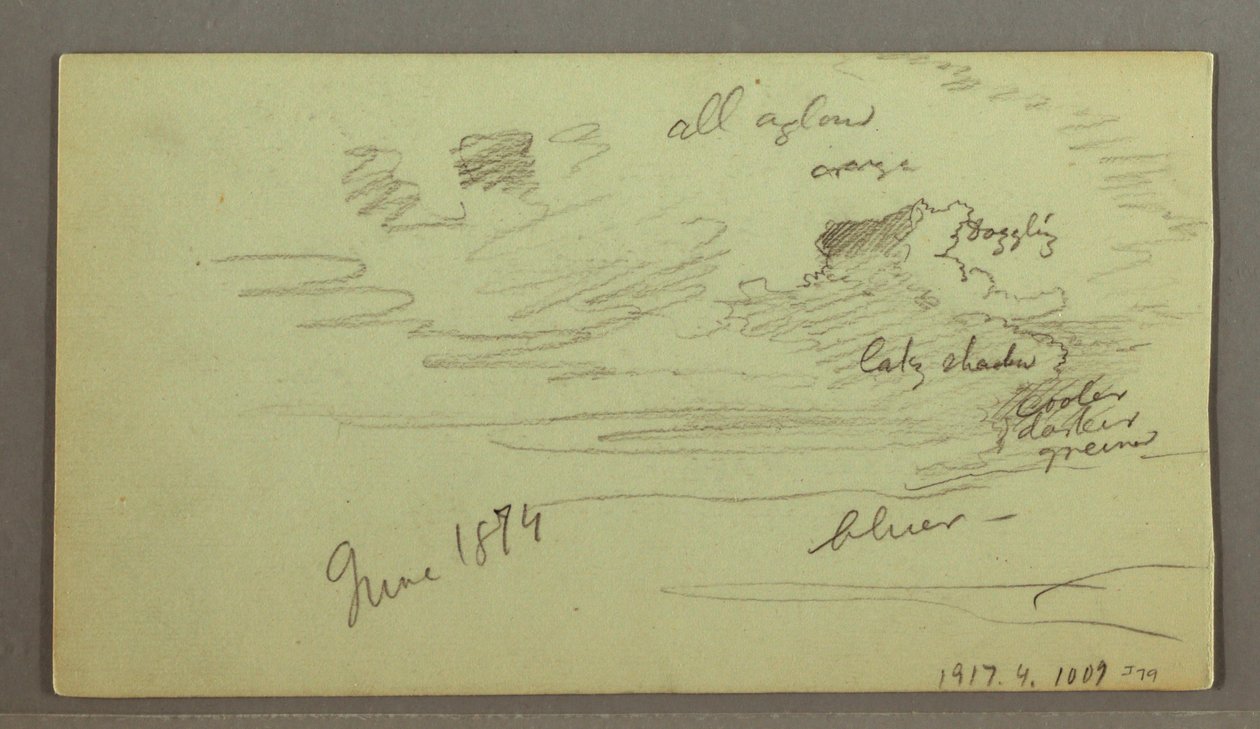 all aglow
orange
laky shadow
cooler
darker
greener
bluer -
June 1874
1917. 4. 1009 J79